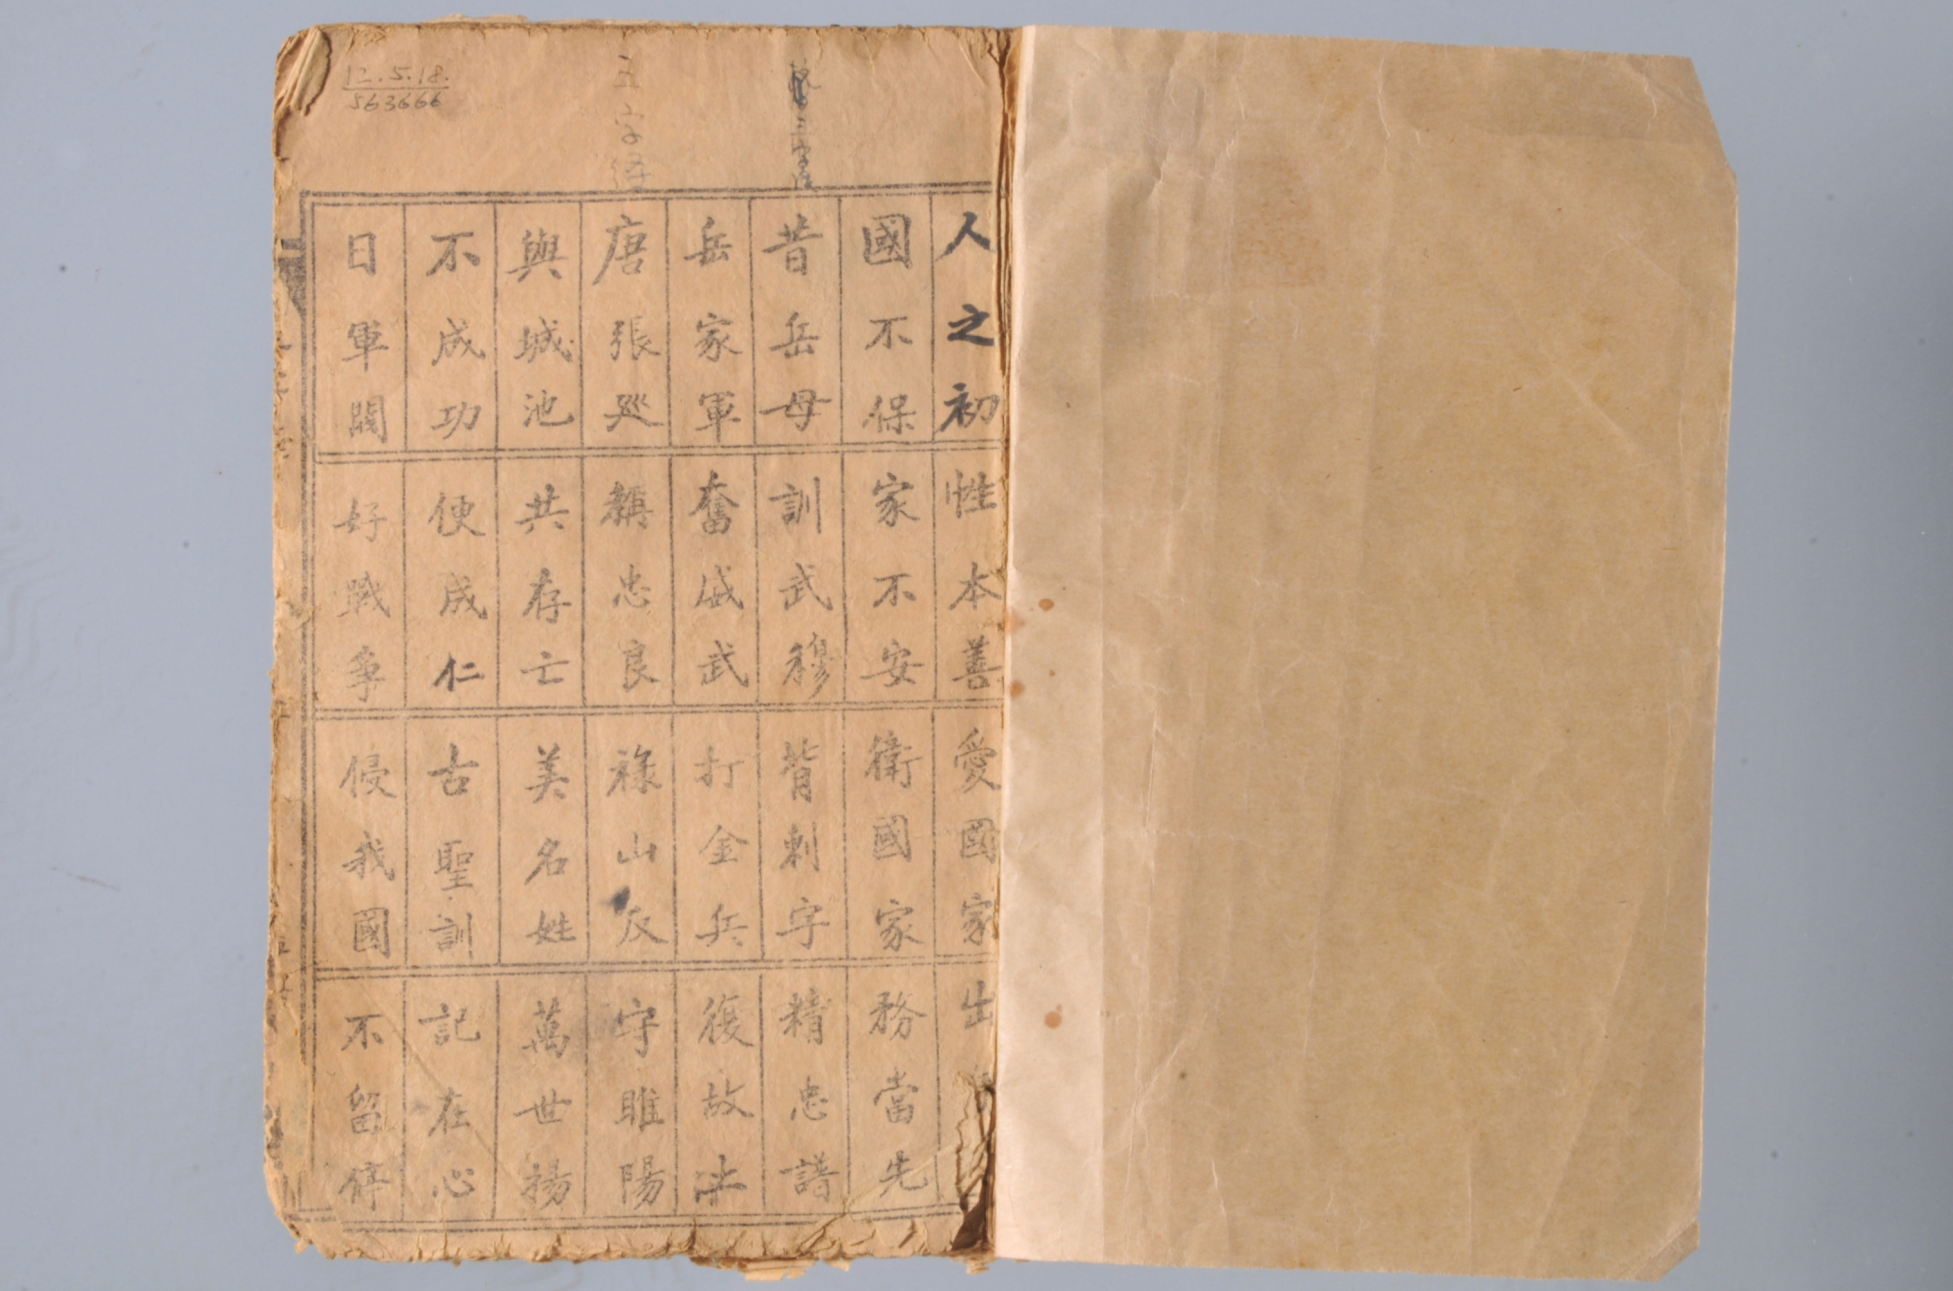 12.5.18.
563666
五字經
人之初 性本善 愛國家 出
國不保 家不安 衛國家 務當先
昔岳母 訓武穆 背刺字 精忠譜
岳家軍 奮威武 打金兵 復故土
唐張巡 稱忠良 祿山反 守睢陽
與城池 共存亡 美名姓 萬世揚
不成功 便成仁 古聖訓 記在心
日軍閥 好戰爭 侵我國 不留停